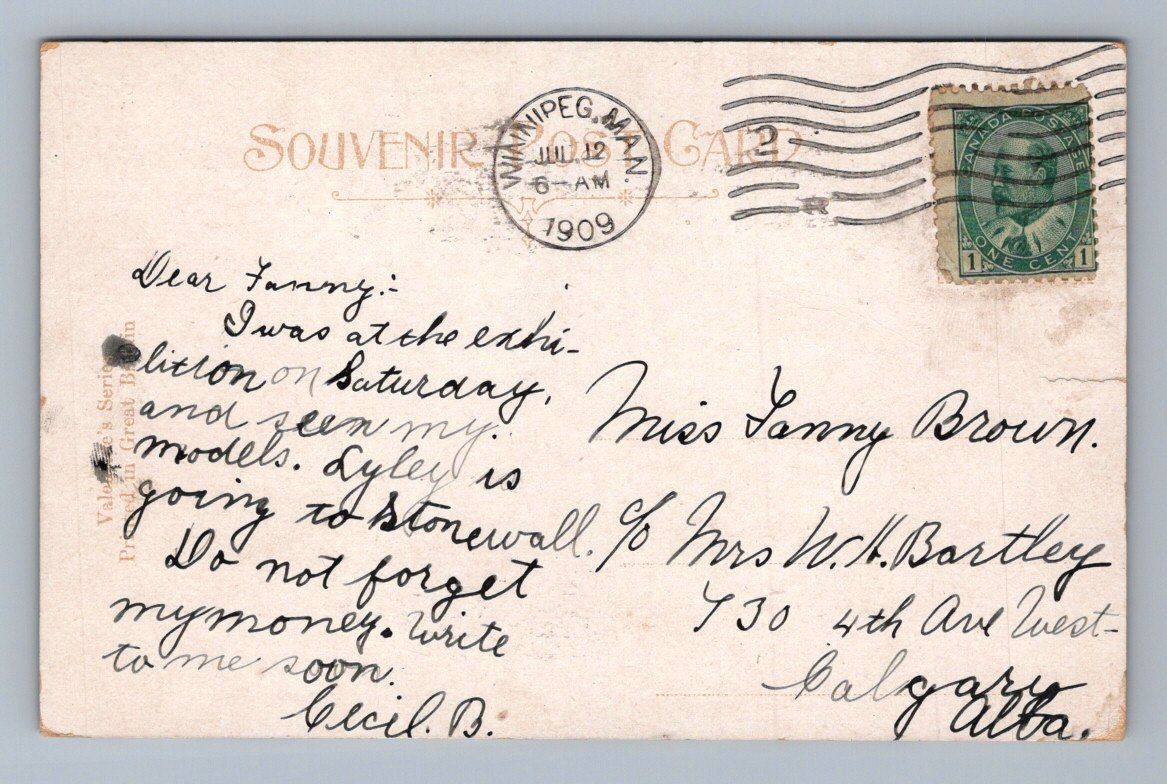 SOUVENIR POST CARD
WINNIPEG, MAN.
JUL 12
6 - AM
1909
2
R
CANADA POSTAGE
1 ONE CENT 1
Dear Fanny:-
I was at the exhi-
bition on Saturday,
and seen my
models. Lyley is
going to Stonewall.
Do not forget
my money. Write
to me soon.
Cecil. B.
Miss Fanny Brown.
c/o Mrs W. H. Bartley
730 4th Ave West-
Calgary
Alba.
Valentine's Series
Printed in Great Britain